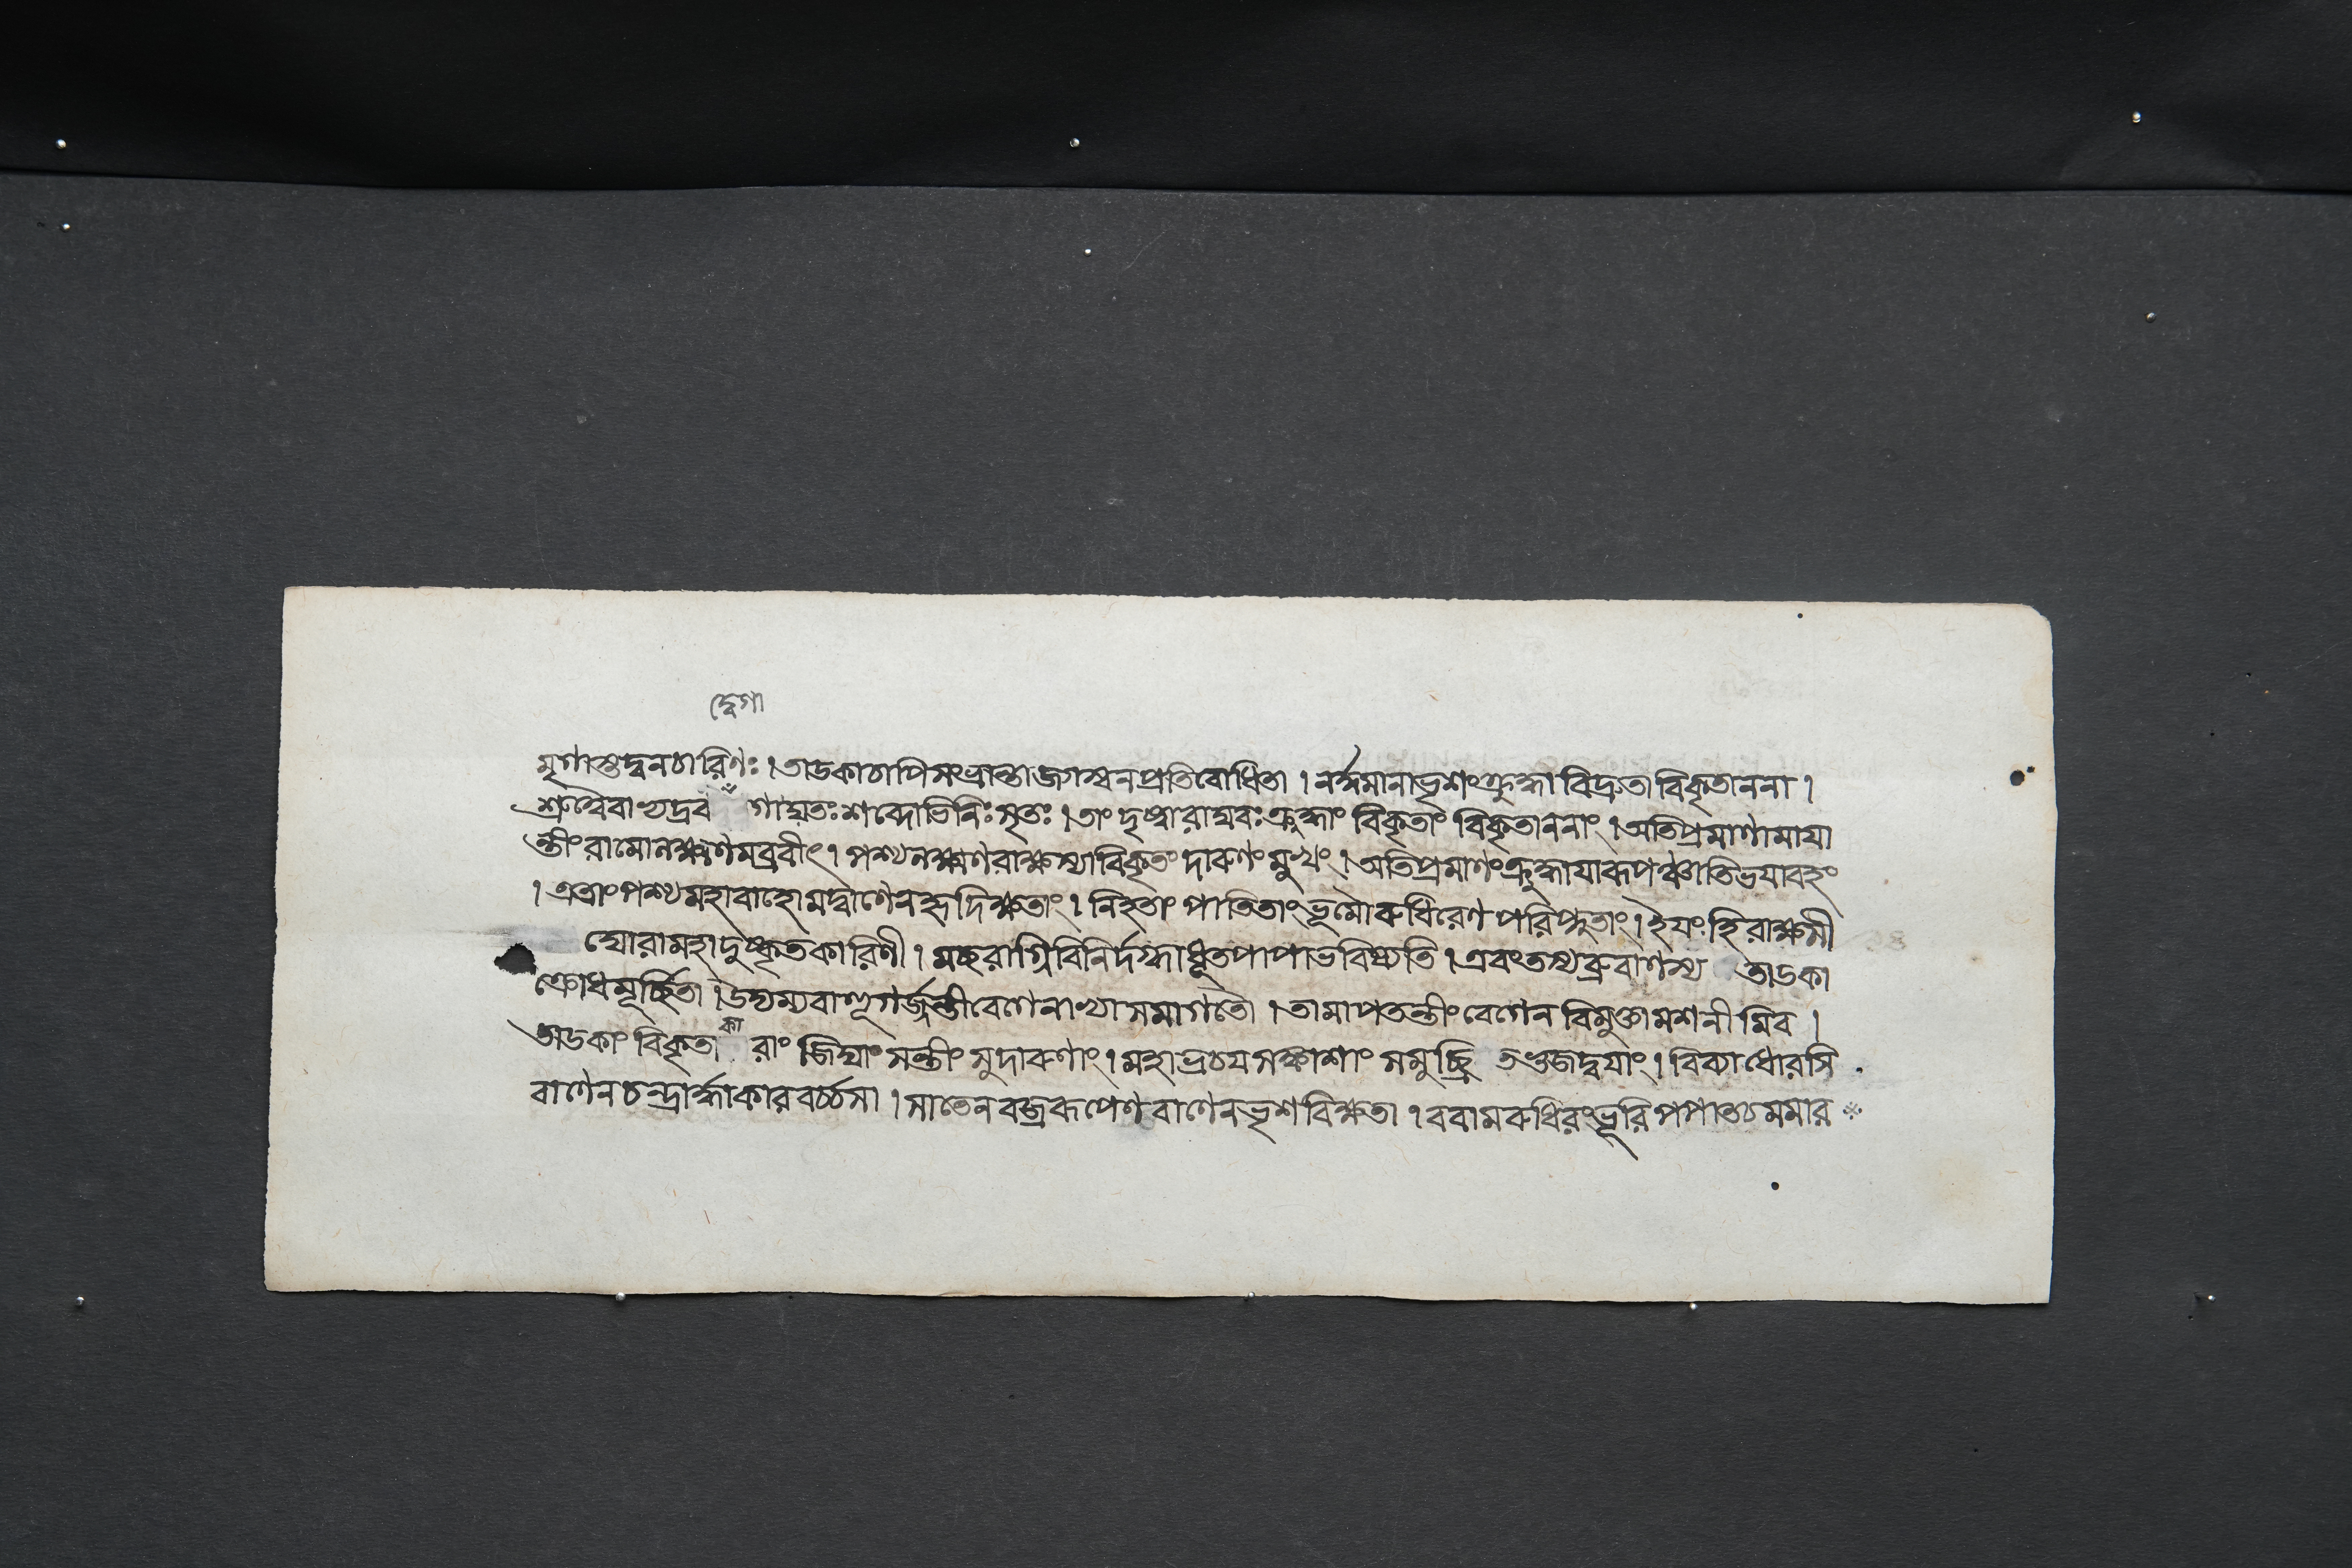 দ্বেগা
মৃগাস্তদ্বনচারিণঃ । তাডকাচাপি সংভ্রান্তাজ্যাস্বনপ্রতিবোধিতা । নর্দ্দমানাভৃশংক্রুদ্ধা বিদ্রুতা বিকৃতাননা ।
শ্রুত্বৈবাখ্যদ্রব গাদ্যতঃ শব্দোভিনিঃসৃতঃ । তাং দৃষ্ট্বা রাঘবঃ ক্রুদ্ধাং বিকৃতাং বিকৃতাননাং । অতিপ্রমাণামাযা
ন্তীং রামোলক্ষ্মণমব্রবীৎ । পশ্য লক্ষ্মণ রাক্ষস্যা বিকৃতং দারুণং মুখং । অতিপ্রমাণং ক্রুদ্ধাযারূপঞ্চাতিভযাবহং
। এতাং পশ্য মহাবাহো মদ্বাণেন হৃদিক্ষতাং । নিহতাং পাতিতাং ভূমৌ রুধিরেণ পরিপ্লুতাং । ইযং হি রাক্ষসী
ঘোরামহাদুষ্কৃতকারিণী । মচ্ছরাগ্নিবিনির্দগ্ধা ধূতপাপাভবিষ্যতি । এবং তস্য ব্রুবাণস্য তাডকা
ক্রোধমূর্চ্ছিতা । উদ্যম্য বাহূ গর্জ্জন্তী বেগেনাভ্যাসমাগতৌ । তামাপতন্তীং বেগেন বিমুক্তামশনীমিব ।
তাডকাং বিকৃতাকারাং জিঘাংসন্তীং সুদারুণাং । মহাভ্রচযসঙ্কাশাং সমুচ্ছ্রিতভুজদ্বযাং । বিব্যাধোরসি
বাণেন চন্দ্রার্দ্ধাকারবর্চ্চসা । সাতেন বজ্ররূপেণ বাণেন ভৃশবিক্ষতা । ববাম রুধিরং ভূরি পপাত চ মমার